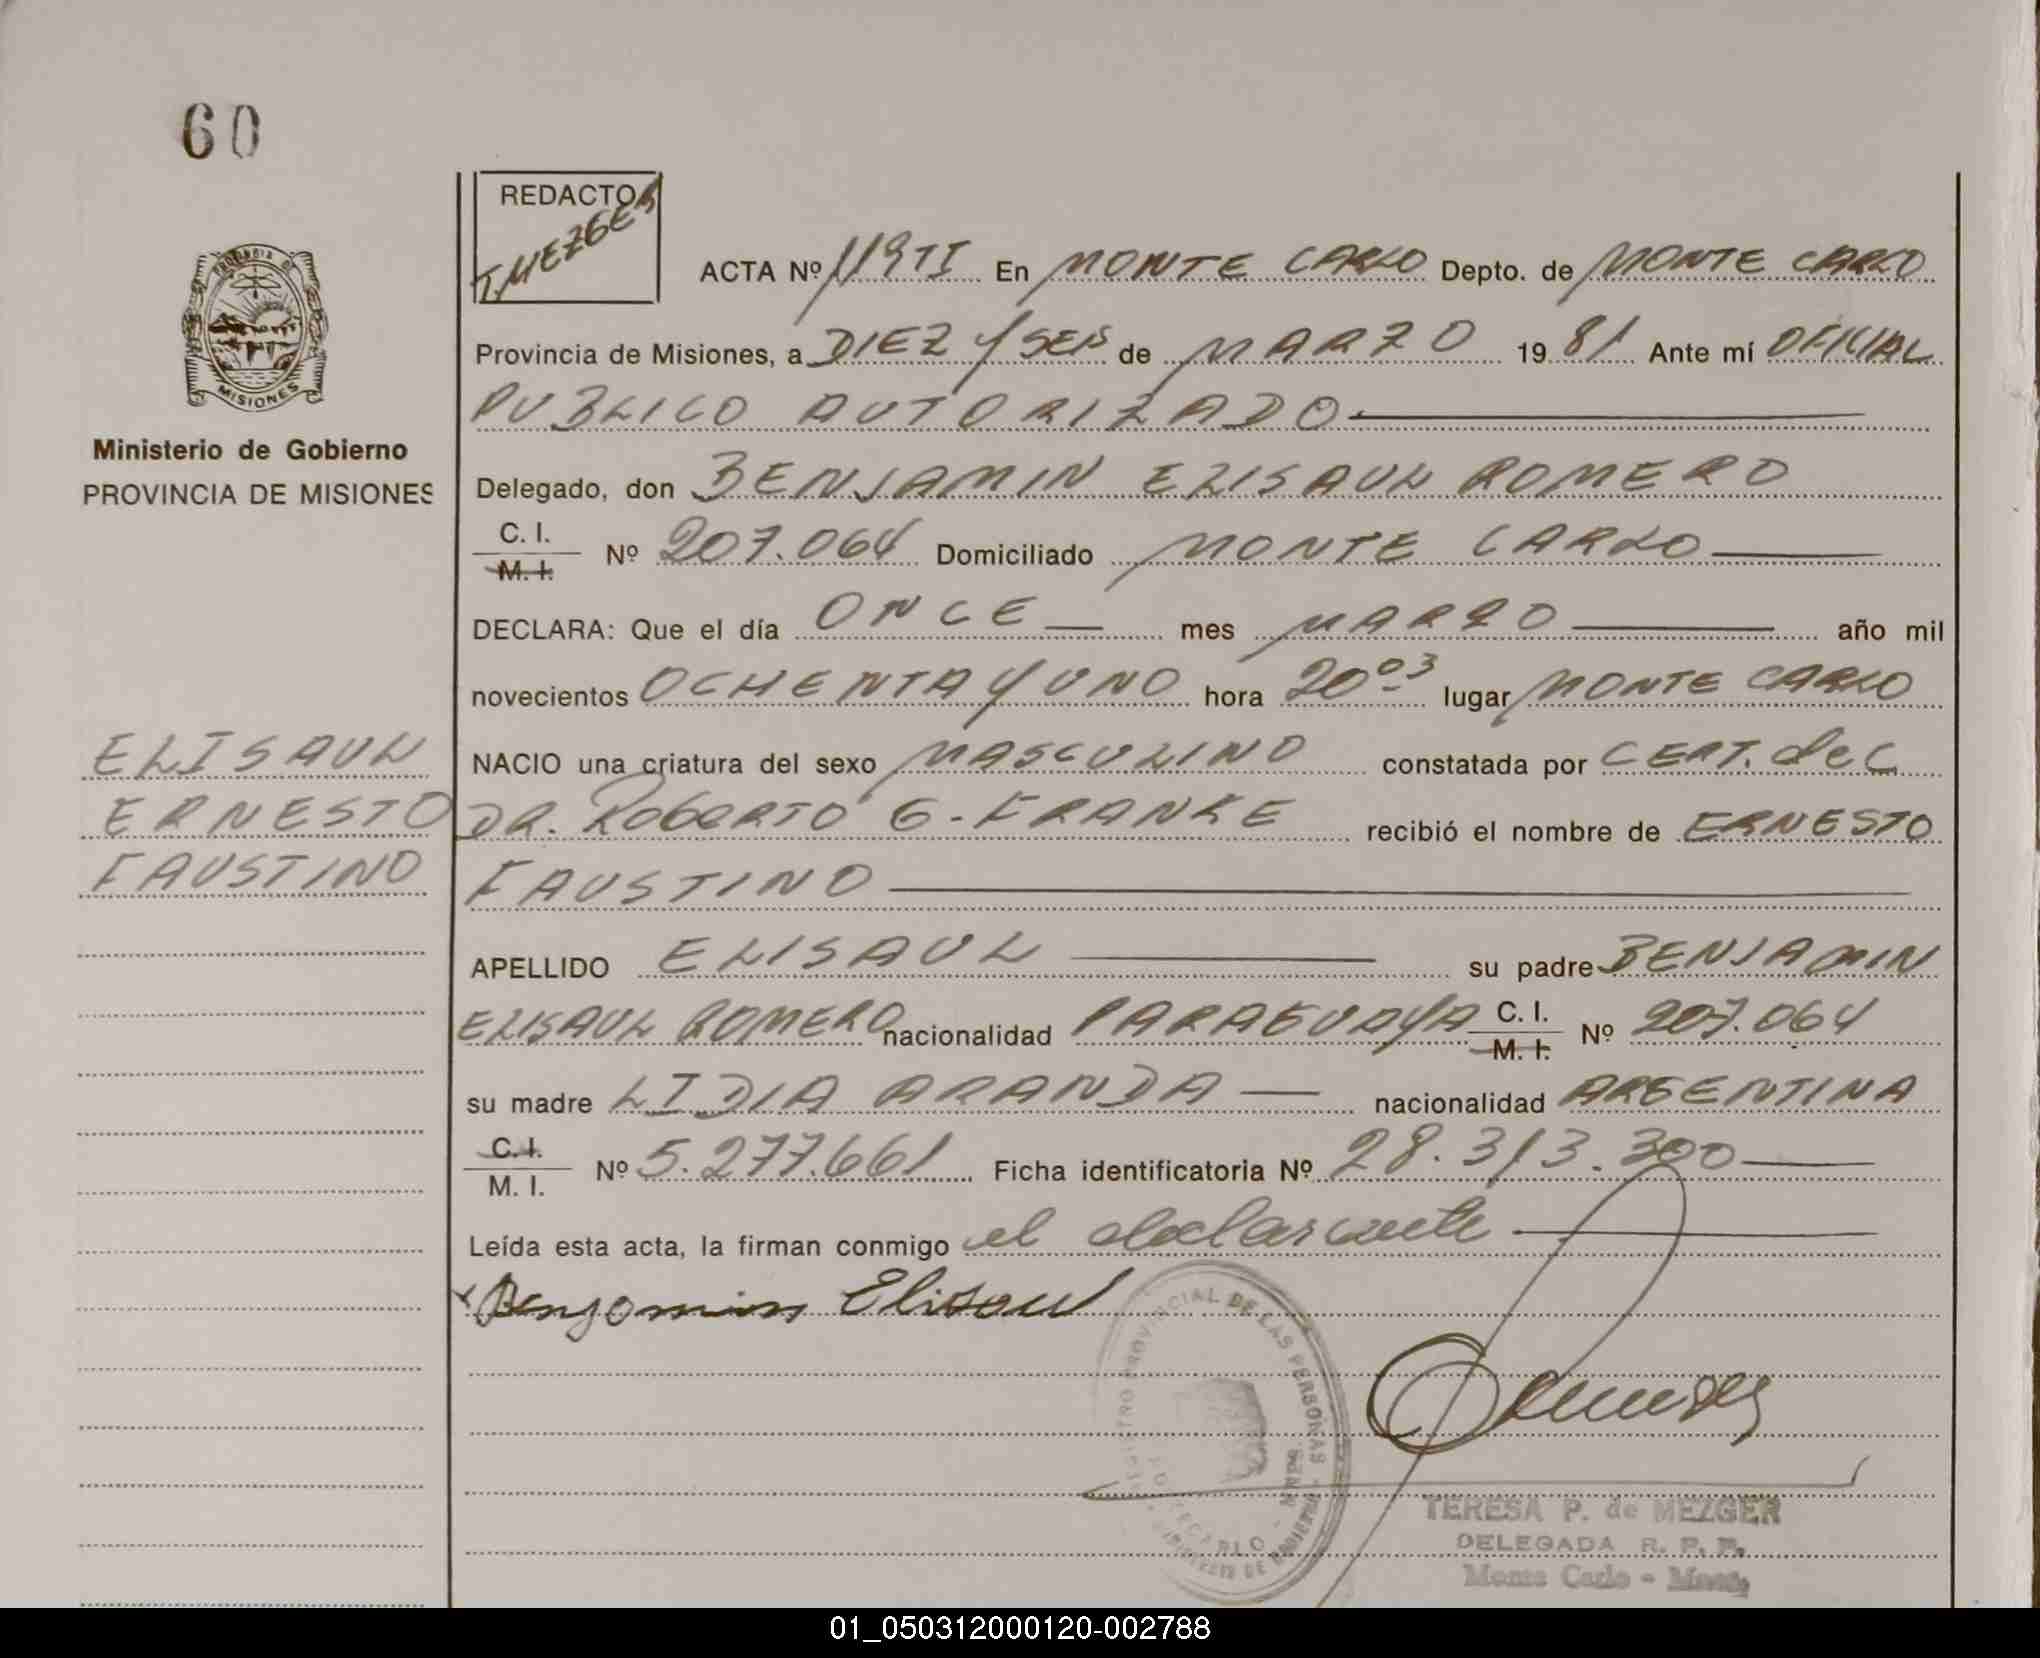 60
REDACTO
T. MEZGER
ACTA Nº 119 TI En MONTE CARLO Depto. de MONTE CARLO
Provincia de Misiones, a DIEZ Y SEIS de MARZO 19 81 Ante mí OFICIAL
PUBLICO AUTORIZADO
Ministerio de Gobierno
PROVINCIA DE MISIONES
Delegado, don BENJAMIN ELISAUL ROMERO
C. I.
M. I.
Nº 207.064 Domiciliado MONTE CARLO
DECLARA: Que el día ONCE mes MARZO año mil
novecientos OCHENTA Y UNO hora 20 03 lugar MONTE CARLO
NACIO una criatura del sexo MASCULINO constatada por CERT. de C
DR. ROBERTO G. FRANKE recibió el nombre de ERNESTO
FAUSTINO
ELISAUL
ERNESTO
FAUSTINO
APELLIDO ELISAUL su padre BENJAMIN
ELISAUL ROMERO nacionalidad PARAGUAYA C. I. M. I. Nº 207.064
su madre LIDIA ARANDA nacionalidad ARGENTINA
C. I.
M. I.
Nº 5.277.661 Ficha identificatoria Nº 28.313.300
Leída esta acta, la firman conmigo el declarante
Benjamin Elisaul
REGISTRO PROVINCIAL DE LAS PERSONAS
TERESA P. de MEZGER
DELEGADA R. P. P.
Monte Carlo - Mnes
01_050312000120-002788